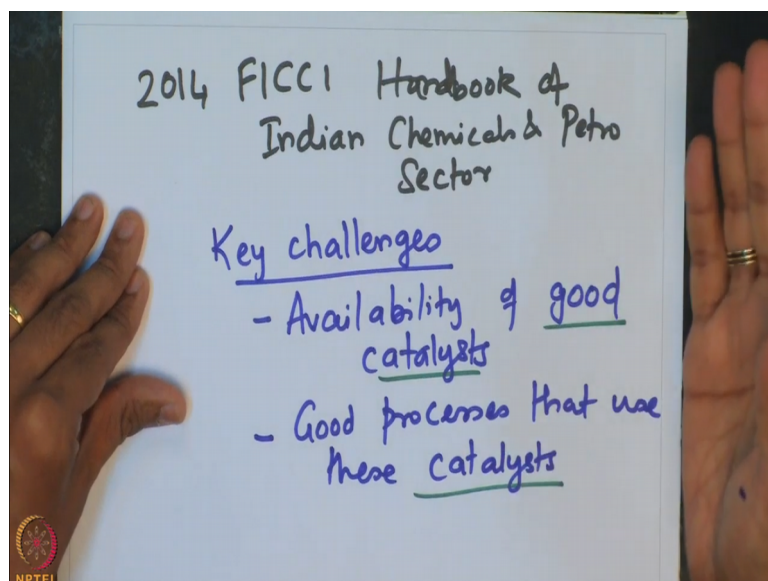 2014 FICCI Handbook of
Indian Chemicals & Petro
Sector
Key challenges
- Availability of good
catalysts
- Good processes that use
these catalysts
NPTEL